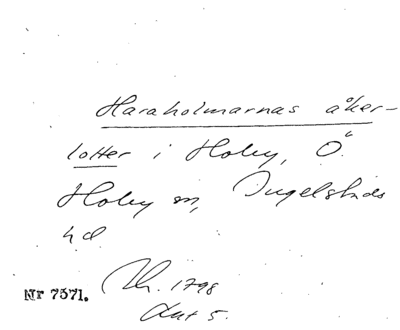 Haraholmarnas åker-
lotter i Hoby, Ö.
Hoby sn, Ingelstads
hd
Nr 7371. 1798
Akt 5.